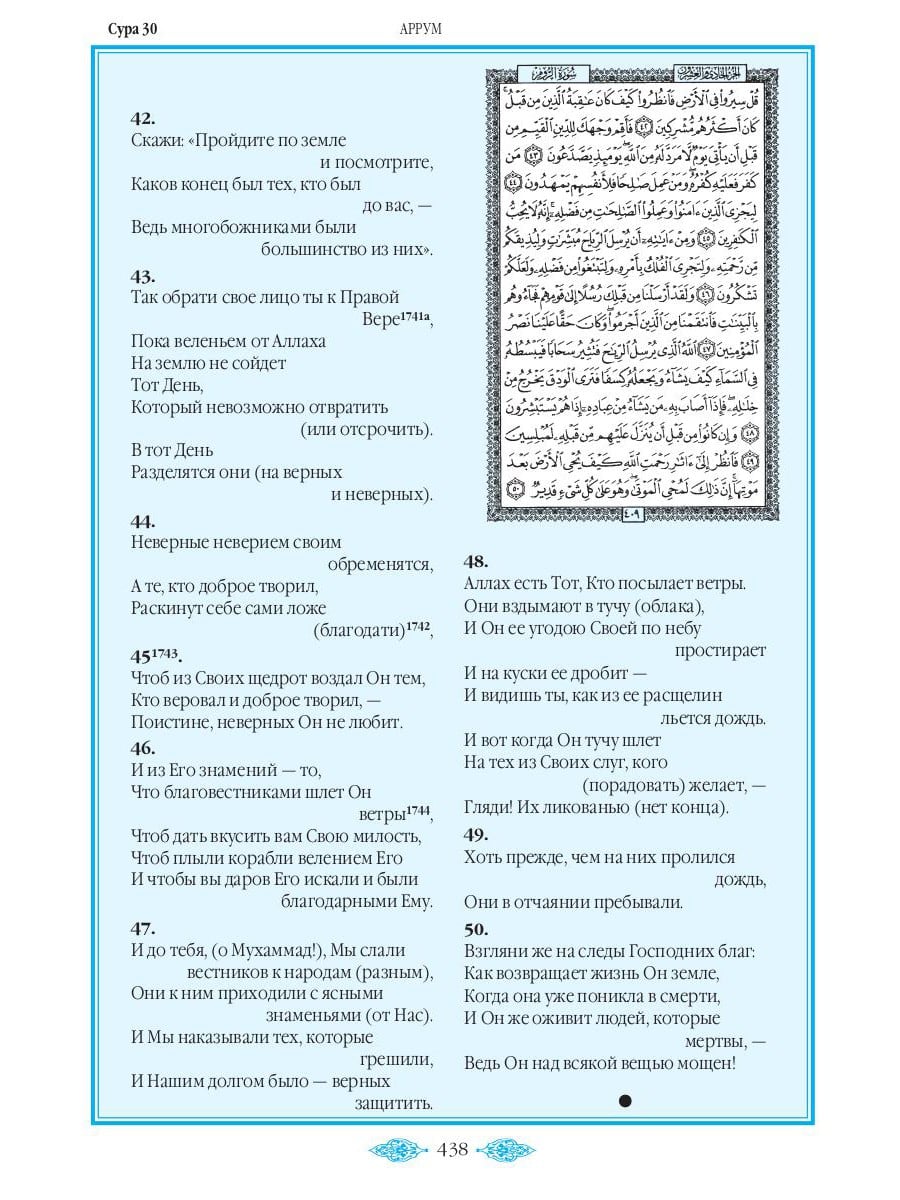 Сура 30
АРРУМ
42.
Скажи: «Пройдите по земле
и посмотрите,
Каков конец был тех, кто был
до вас, —
Ведь многобожниками были
большинство из них».
43.
Так обрати свое лицо ты к Правой
Вере¹⁷⁴¹ᵃ,
Пока веленьем от Аллаха
На землю не сойдет
Тот День,
Который невозможно отвратить
(или отсрочить).
В тот День
Разделятся они (на верных
и неверных).
44.
Неверные неверием своим
обременятся,
А те, кто доброе творил,
Раскинут себе сами ложе
(благодати)¹⁷⁴²,
45¹⁷⁴³.
Чтоб из Своих щедрот воздал Он тем,
Кто веровал и доброе творил, —
Поистине, неверных Он не любит.
46.
И из Его знамений — то,
Что благовестниками шлет Он
ветры¹⁷⁴⁴,
Чтоб дать вкусить вам Свою милость,
Чтоб плыли корабли велением Его
И чтобы вы даров Его искали и были
благодарными Ему.
47.
И до тебя, (о Мухаммад!), Мы слали
вестников к народам (разным),
Они к ним приходили с ясными
знаменьями (от Нас).
И Мы наказывали тех, которые
грешили,
И Нашим долгом было — верных
защитить.
الجزء الحادي والعشرون
سورة الروم
قُلْ سِيرُوا۟ فِى ٱلْأَرْضِ فَٱنظُرُوا۟ كَيْفَ كَانَ عَـٰقِبَةُ ٱلَّذِينَ مِن قَبْلُ ۚ
كَانَ أَكْثَرُهُم مُّشْرِكِينَ ٤٢ فَأَقِمْ وَجْهَكَ لِلدِّينِ ٱلْقَيِّمِ مِن
قَبْلِ أَن يَأْتِىَ يَوْمٌ لَّا مَرَدَّ لَهُۥ مِنَ ٱللَّهِ ۖ يَوْمَئِذٍ يَصَّدَّعُونَ ٤٣ مَن
كَفَرَ فَعَلَيْهِ كُفْرُهُۥ ۖ وَمَنْ عَمِلَ صَـٰلِحًا فَلِأَنفُسِهِمْ يَمْهَدُونَ ٤٤
لِيَجْزِىَ ٱلَّذِينَ ءَامَنُوا۟ وَعَمِلُوا۟ ٱلصَّـٰلِحَـٰتِ مِن فَضْلِهِۦٓ ۚ إِنَّهُۥ لَا يُحِبُّ
ٱلْكَـٰفِرِينَ ٤٥ وَمِنْ ءَايَـٰتِهِۦٓ أَن يُرْسِلَ ٱلرِّيَاحَ مُبَشِّرَٰتٍ وَلِيُذِيقَكُم
مِّن رَّحْمَتِهِۦ وَلِتَجْرِىَ ٱلْفُلْكُ بِأَمْرِهِۦ وَلِتَبْتَغُوا۟ مِن فَضْلِهِۦ وَلَعَلَّكُمْ
تَشْكُرُونَ ٤٦ وَلَقَدْ أَرْسَلْنَا مِن قَبْلِكَ رُسُلًا إِلَىٰ قَوْمِهِمْ فَجَآءُوهُم
بِٱلْبَيِّنَـٰتِ فَٱنتَقَمْنَا مِنَ ٱلَّذِينَ أَجْرَمُوا۟ ۖ وَكَانَ حَقًّا عَلَيْنَا نَصْرُ
ٱلْمُؤْمِنِينَ ٤٧ ٱللَّهُ ٱلَّذِى يُرْسِلُ ٱلرِّيَـٰحَ فَتُثِيرُ سَحَابًا فَيَبْسُطُهُۥ
فِى ٱلسَّمَآءِ كَيْفَ يَشَآءُ وَيَجْعَلُهُۥ كِسَفًا فَتَرَى ٱلْوَدْقَ يَخْرُجُ مِنْ
خِلَـٰلِهِۦ ۖ فَإِذَآ أَصَابَ بِهِۦ مَن يَشَآءُ مِنْ عِبَادِهِۦٓ إِذَا هُمْ يَسْتَبْشِرُونَ
٤٨ وَإِن كَانُوا۟ مِن قَبْلِ أَن يُنَزَّلَ عَلَيْهِم مِّن قَبْلِهِۦ لَمُبْلِسِينَ
٤٩ فَٱنظُرْ إِلَىٰٓ ءَاثَـٰرِ رَحْمَتِ ٱللَّهِ كَيْفَ يُحْىِ ٱلْأَرْضَ بَعْدَ
مَوْتِهَآ ۚ إِنَّ ذَٰلِكَ لَمُحْىِ ٱلْمَوْتَىٰ ۖ وَهُوَ عَلَىٰ كُلِّ شَىْءٍ قَدِيرٌ ٥٠
٤٠٩
48.
Аллах есть Тот, Кто посылает ветры.
Они вздымают в тучу (облака),
И Он ее угодою Своей по небу
простирает
И на куски ее дробит —
И видишь ты, как из ее расщелин
льется дождь.
И вот когда Он тучу шлет
На тех из Своих слуг, кого
(порадовать) желает, —
Гляди! Их ликованью (нет конца).
49.
Хоть прежде, чем на них пролился
дождь,
Они в отчаянии пребывали.
50.
Взгляни же на следы Господних благ:
Как возвращает жизнь Он земле,
Когда она уже поникла в смерти,
И Он же оживит людей, которые
мертвы, —
Ведь Он над всякой вещью мощен!
438